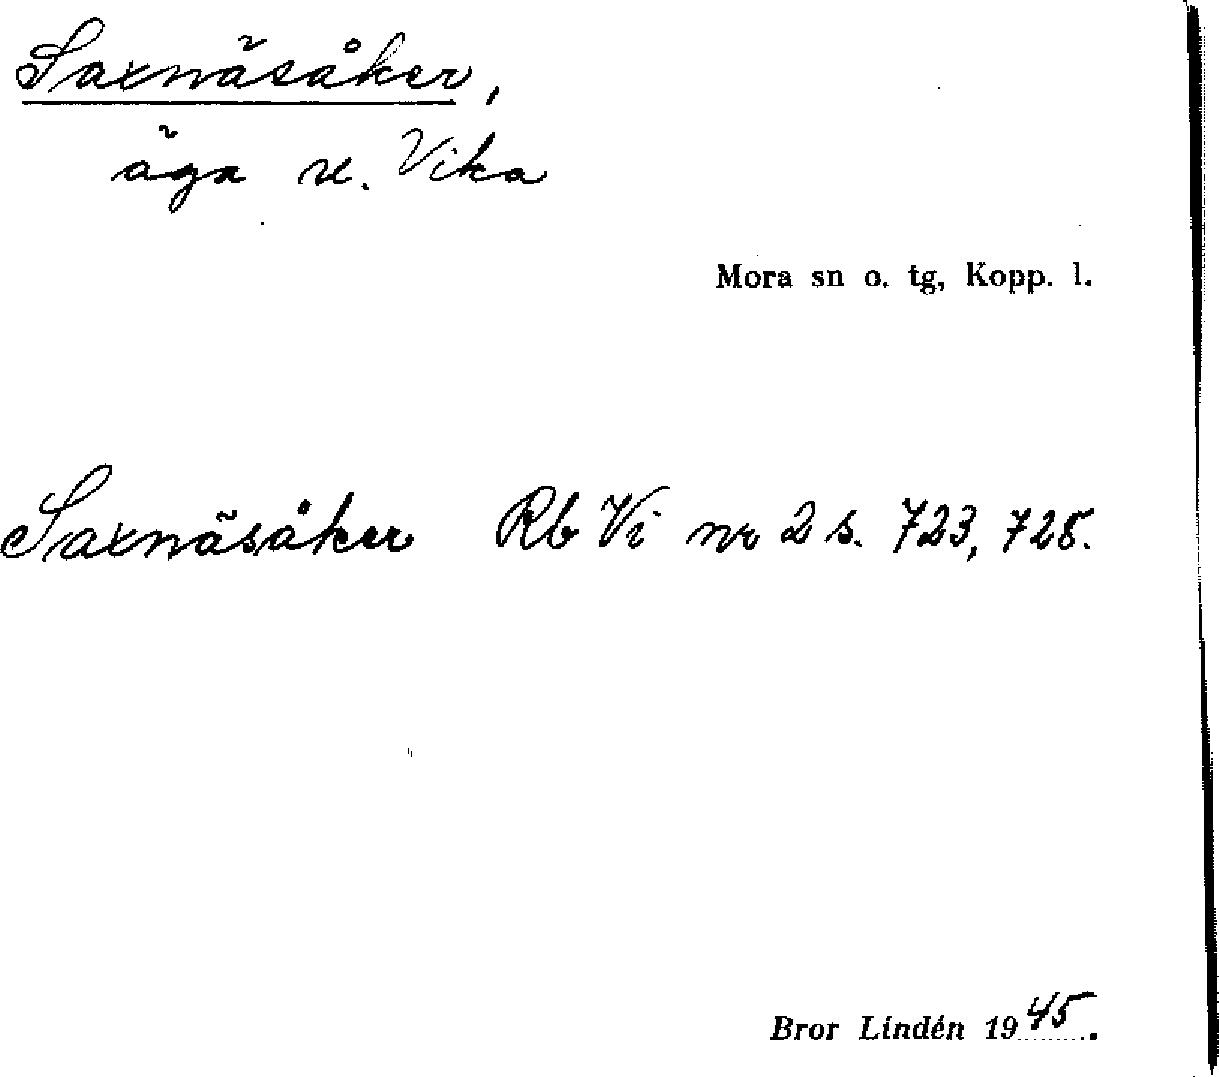 Saxnäsåker,
äga u. Vika
Mora sn o. tg, Kopp. l.
Saxnäsåker Rb Vi nr 2 s. 723, 725.
Bror Lindén 1945.